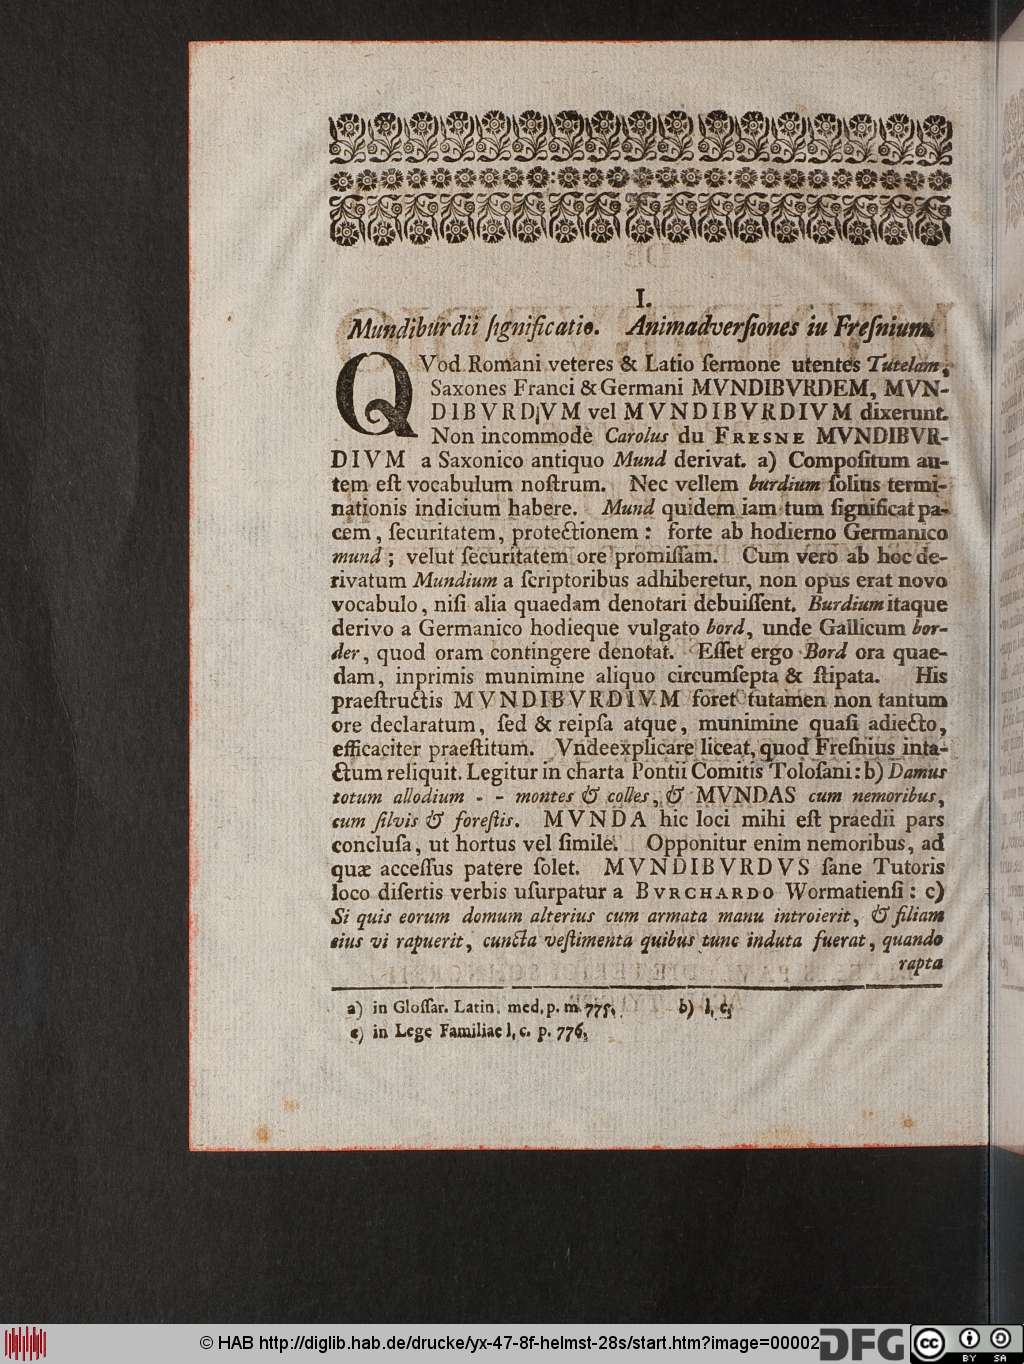 I.
Mundiburdii ſignificatio. Animadverſiones iu Freſnium.
QVod Romani veteres & Latio ſermone utentes Tutelam,
Saxones Franci & Germani MVNDIBVRDEM, MVN-
DIBVRDIVM vel MVNDIBVRDIVM dixerunt.
Non incommode Carolus du FRESNE MVNDIBVR-
DIVM a Saxonico antiquo Mund derivat. a) Compoſitum au-
tem eſt vocabulum noſtrum. Nec vellem burdium ſolius termi-
nationis indicium habere. Mund quidem iam tum ſignificat pa-
cem, ſecuritatem, protectionem: forte ab hodierno Germanico
mund; velut ſecuritatem ore promiſſam. Cum vero ab hoc de-
rivatum Mundium a ſcriptoribus adhiberetur, non opus erat novo
vocabulo, niſi alia quaedam denotari debuiſſent. Burdium itaque
derivo a Germanico hodieque vulgato bord, unde Gallicum bor-
der, quod oram contingere denotat. Eſſet ergo Bord ora quae-
dam, inprimis munimine aliquo circumſepta & ſtipata. His
praeſtructis MVNDIBVRDIVM foret tutamen non tantum
ore declaratum, ſed & reipſa atque, munimine quaſi adiecto,
efficaciter praeſtitum. Vndeexplicare liceat, quod Freſnius inta-
ctum reliquit. Legitur in charta Pontii Comitis Toloſani: b) Damus
totum allodium - - montes & colles, & MVNDAS cum nemoribus,
cum ſilvis & foreſtis. MVNDA hic loci mihi eſt praedii pars
concluſa, ut hortus vel ſimile. Opponitur enim nemoribus, ad
quæ acceſſus patere ſolet. MVNDIBVRDVS ſane Tutoris
loco diſertis verbis uſurpatur a BVRCHARDO Wormatienſi: c)
Si quis eorum domum alterius cum armata manu introierit, & filiam
eius vi rapuerit, cuncta veſtimenta quibus tunc induta fuerat, quando
rapta
a) in Gloſſar. Latin. med. p. m. 775. b) l. c.
c) in Lege Familiae l. c. p. 776.
© HAB http://diglib.hab.de/drucke/yx-47-8f-helmst-28s/start.htm?image=00002
DFG
cc
BY SA